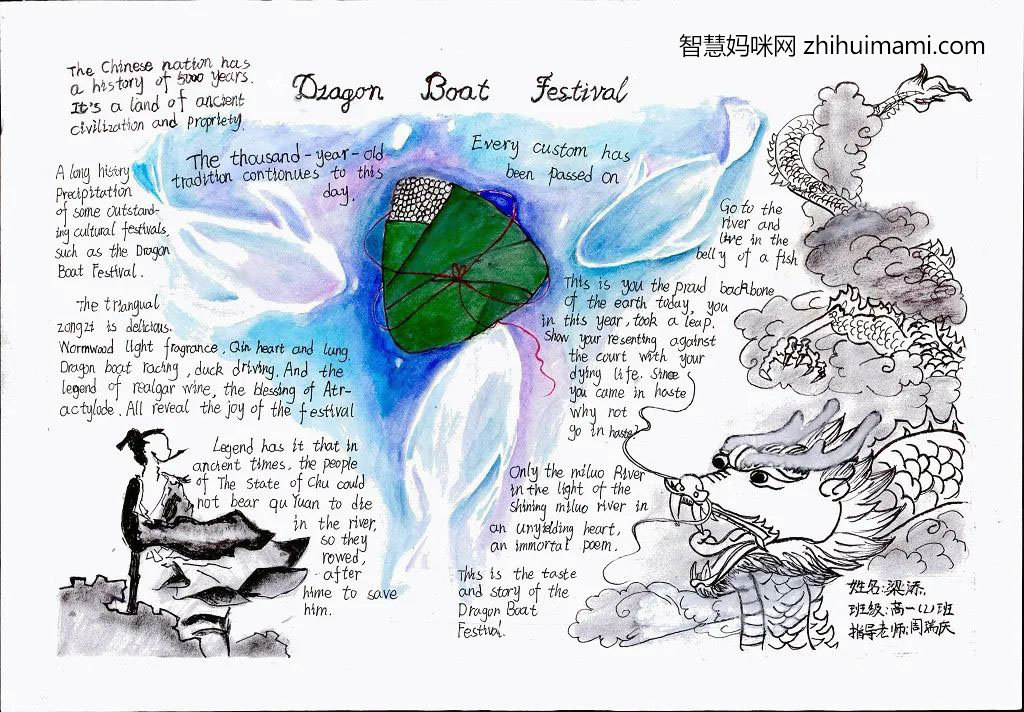 智慧妈咪网 zhihuimami.com
Dragon Boat Festival
The Chinese nation has
a history of 5000 years.
It's a land of ancient
civilization and propriety.
The thousand-year-old
tradition contionues to this
day.
Every custom has
been passed on
A long history
Precipitation
of some outstand-
ing cultural festivals,
such as the Dragon
Boat Festival.
Go to the
river and
live in the
belly of a fish
The triangual
zongzi is delicious.
Wormwood light fragrance, Qin heart and lung.
Dragon boat racing, duck driving. And the
legend of realgar wine, the blessing of Atr-
actylode. All reveal the joy of the festival
This is you the proud backbone
of the earth today, you
in this year, took a leap.
Show your resenting against
the court with your
dying life. Since
you came in haste
why not
go in haste?
Legend has it that in
ancient times, the people
of The State of Chu could
not bear qu Yuan to die
in the river,
so they
rowed,
after
hime to save
him.
Only the miluo River
in the light of the
Shining miluo river in
an unyielding heart,
an immortal poem.
This is the taste
and story of the
Dragon Boat
Festival.
姓名:梁添
班级:高一(2)班
指导老师:周瑞庆